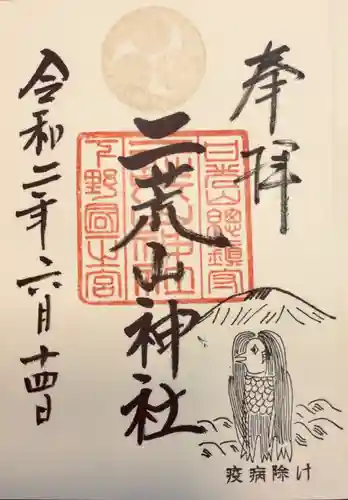 奉拝
日光山總鎮守
二荒山神社
下野國一之宮
令和二年六月十四日
疫病除け